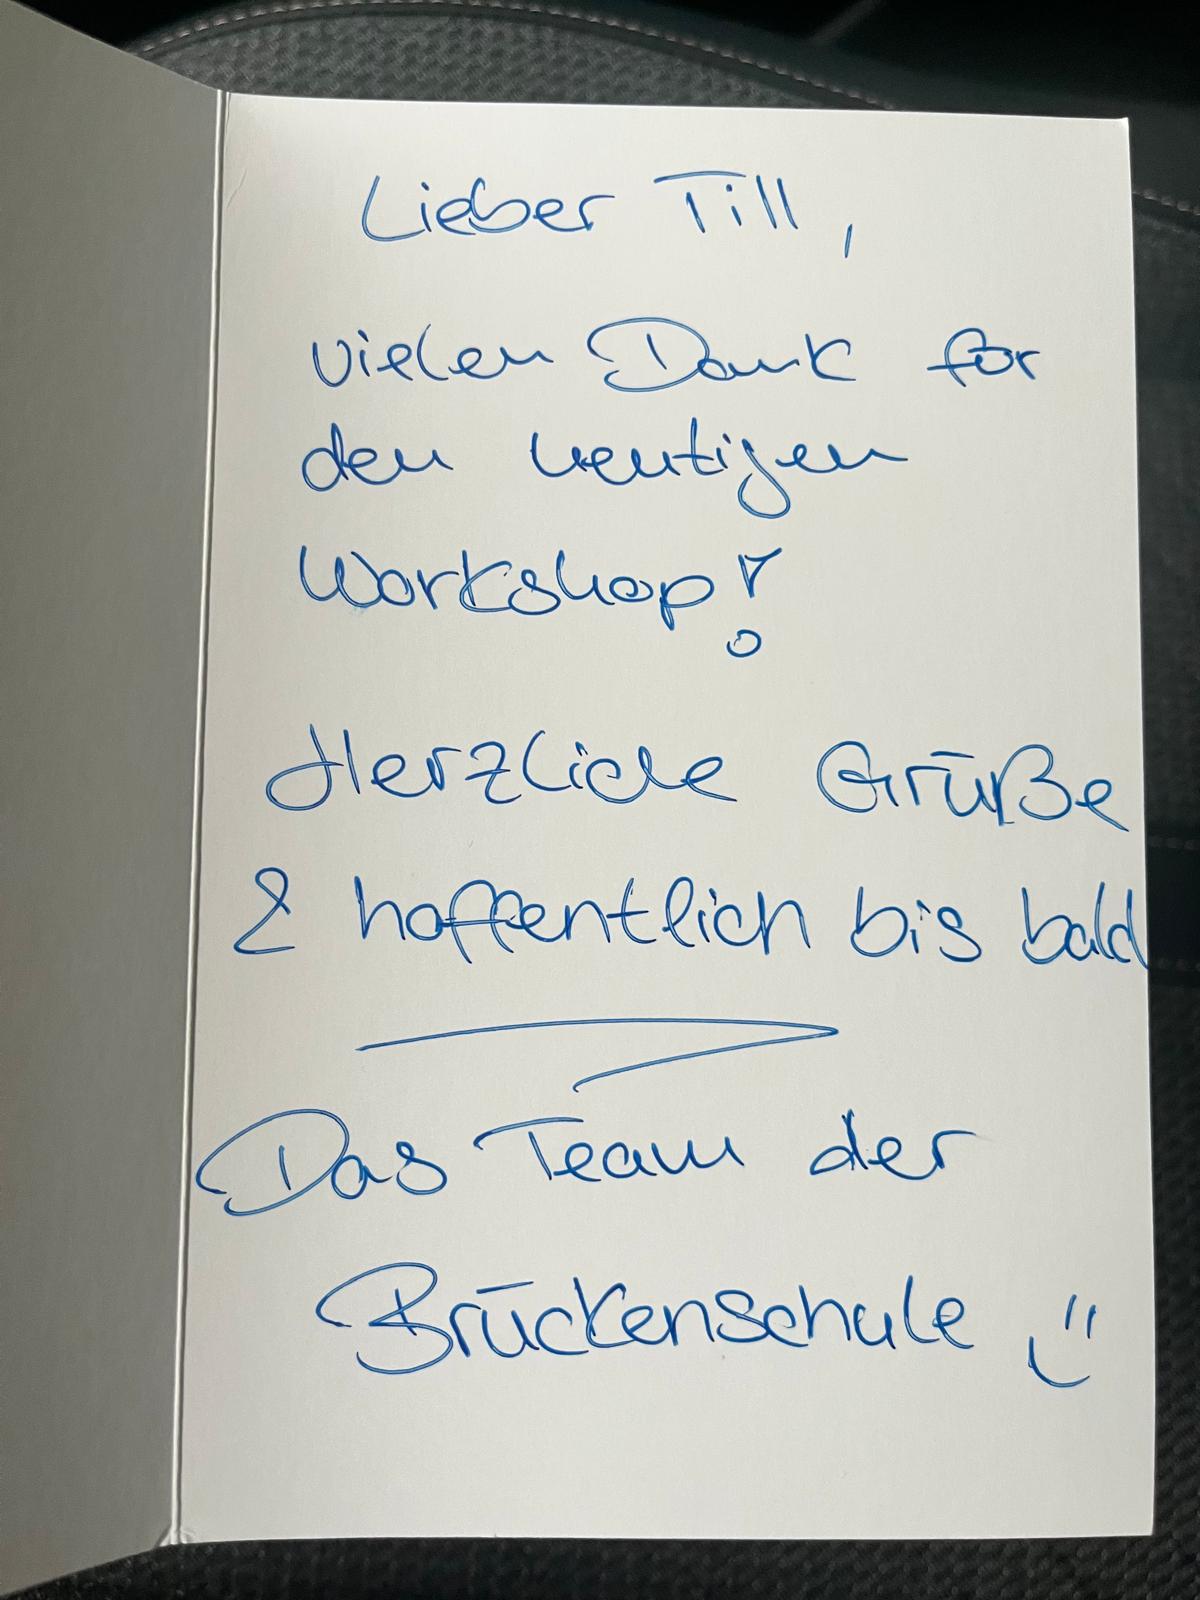 Lieber Till,
vielen Dank für
den heutigen
Workshop!
Herzliche Grüße
& hoffentlich bis bald
Das Team der
Brückenschule